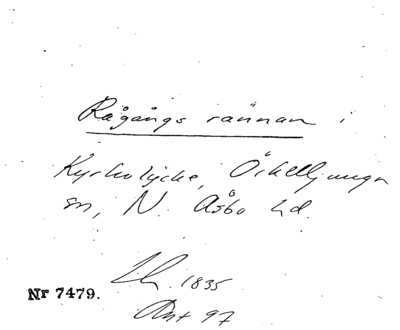 Rågångs rännan i
Kyrkolycke, Örkelljunga
sn, N. Åsbo hd.
1835
Nr 7479.
Akt 97